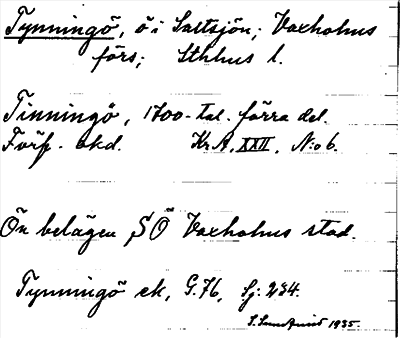 Tynningö, ö i Saltsjön; Vaxholms
förs; Sthlms l.
Tinningö, 1700-tal. förra del.
Förf. okd. KrA, XXII, N:o 6.
Ön belägen SÖ Vaxholms stad.
Tynningö ek, G.76, Sj: 234.
1935.